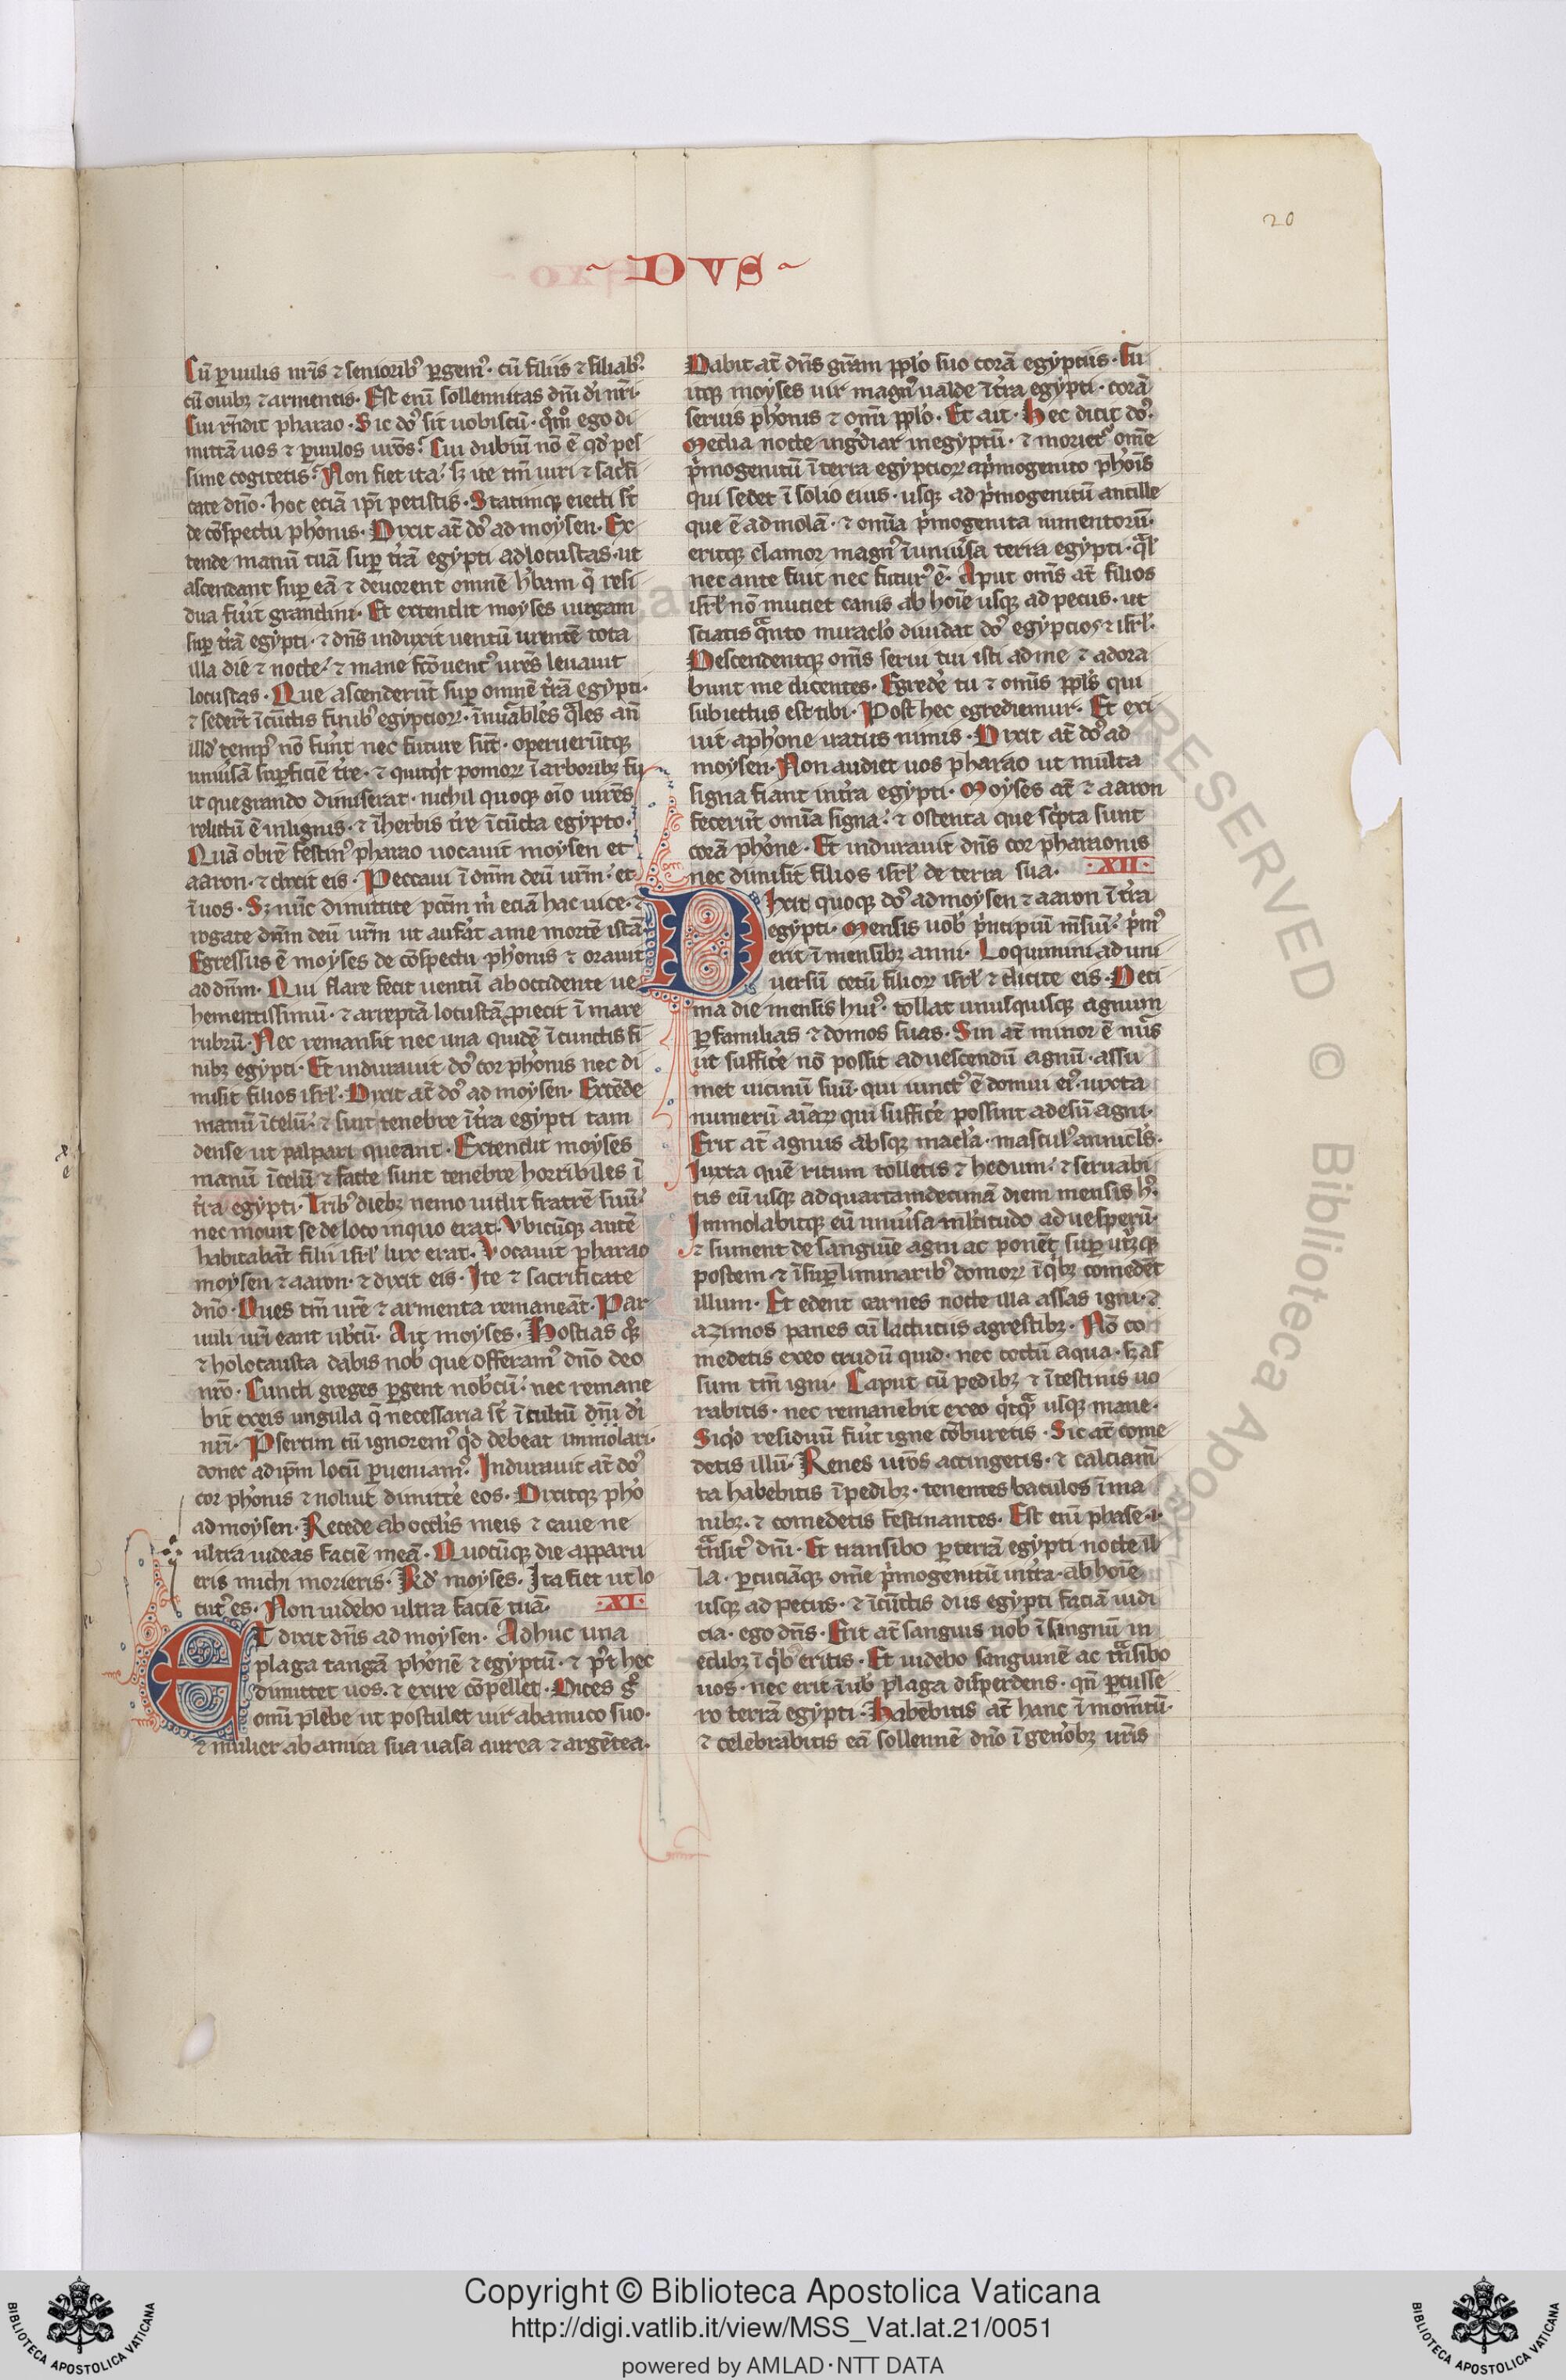 20
~ DVS ~
Cū ꝑuulis nr̄is ⁊ senioribꝰ ꝑgemꝰ · cū filiis ⁊ filiabꝰ ·
cū ouibꝫ ⁊ armentis · Est enī sollennitas dn̄i di nr̄i ·
Cui rn̄dit pharao · Sic doꝰ sit uobiscū · qm̄o ego di
mittā uos ⁊ ꝑuulos ur̄os · Cui dubiū nō ē qd pes
sime cogitetis · Non fiet ita · sꝫ ite tm̄ uiri ⁊ sacͥfi
cate dn̄o · hoc eciā ip̄i petistis · Statimqꝫ eiecti st̄
de cōspectu phōnis · Dixit at̄ doꝰ ad moysen · Ex
tende manū tuā suꝑ tr̄ā egypti ad locustas · ut
ascendant suꝑ eā ⁊ deuorent omnē hb̄am q̄ resi
dua fūit grandini · Et extendit moyses uirgam
suꝑ tr̄ā egypti · ⁊ dn̄s induxit uentū urentē tota
illa die ⁊ nocte · ⁊ mane fc̄o uentꝰ ur̄es leuauit
locustas · Que ascenderūt suꝑ omnē tr̄ā egypti ·
⁊ sedert̄ ī cūctis finibꝰ egyptioꝝ · īnūabiles qͣles an̄
illd tempꝰ nō funt̄ nec future sūt · operuerūtqꝫ
uniūsā suꝑficiē tr̄e · ⁊ quitqͥt pomoꝝ ī arboribꝫ fu
it que grando dimiserat · nichil quoqꝫ oīo uirēs
relictū ē in lignis · ⁊ ī herbis tr̄e ī cūcta egypto ·
Quā obrē festinꝰ pharao uocauit moysen et
aaron · ⁊ dixit eis · Peccaui ī dn̄m deū ur̄m · et
ī uos · Sꝫ nūc dimittite pctm̄ m̄ eciā hac uice · ⁊
rogate dn̄m deū ur̄m ut aufāt a me mortē istā
Egressus ē moyses de cōspectu phōnis ⁊ orauit
ad dn̄m · Qui flare fecit uentū ab occidente ue
hementissimū · ⁊ arreptā locustā ꝓiecit ī mare
rubrū · Nec remansit nec una quidē ī cunctis fi
nibꝫ egypti · Et indurauit doꝰ cor phōnis nec di
misit filios isrl̄ · Dixit at̄ doꝰ ad moysen · Extēde
manū ī celū · ⁊ sint tenebre ī tr̄a egypti tam
dense ut palpari queant · Extendit moyses
manū ī celū ⁊ facte sunt tenebre horribiles ī
tr̄a egypti · Tribꝰ diebꝫ nemo uidit fratrē suū ·
nec mouit se de loco in quo erat · Vbicūqꝫ autē
habitabāt filii isrl̄ lux erat · Vocauit pharao
moysen ⁊ aaron · ⁊ dixit eis · Ite ⁊ sacrificate
dn̄o · Oues tm̄ ur̄e ⁊ armenta remaneāt · Par
uuli ur̄i eant ub̄cū · Ait moyses · Hostias qͦꝫ
⁊ holocausta dabis nob̄ que offeramꝰ dn̄o deo
nr̄o · Cuncti greges ꝑgent nob̄cū · nec remane
bit ex eis ungula q̄ necessaria st̄ ī cultū dn̄i di
nr̄i · P̄sertim cū ignoremꝰ qͥd debeat immolari ·
donec ad ip̄m locū ꝑueniamꝰ · Indurauit at̄ doꝰ
cor phōnis ⁊ noluit dimittē eos · Dixitqꝫ phō
ad moysen · Recede ab oculis meis ⁊ caue ne
ultra uideas faciē meā · Quocūqꝫ die apparu
eris michi morieris · Rd̄ moyses · Ita fiet ut lo
cutꝰ es · Non uidebo ultra faciē tuā · · XI ·
ET dixit dn̄s ad moysen · Adhuc una
plaga tangā phōnē ⁊ egyptū · ⁊ p̄t hec
dimittet uos · ⁊ exire cōpellet · Dices gͦ
omī plebe ut postulet uir ab amico suo ·
⁊ mulier ab amica sua uasa aurea ⁊ argētea ·
Dabit at̄ dn̄s grā̄m pplo suo corā egyptiis · Fu
itqꝫ moyses uir magnꝰ ualde ī tr̄a egypti · corā
seruis phōnis ⁊ omī pplo · Et ait · Hec dicit doꝰ ·
Media nocte ingͥdiar in egyptū · ⁊ morietꝰ omē
pͥmogenitū ī terra egyptioꝝ a pͥmogenito phōis
qui sedet ī solio eius · usqꝫ ad pͥmogenitū ancille
que ē ad molā · ⁊ omīa pͥmogenita iumentorū ·
eritqꝫ clamor magnꝰ ī uniūsa terra egypti · qͣl̄
nec ante fuit nec futurꝰ ē · Aput om̄s at̄ filios
isrl̄ nō mutiet canis ab hoīe usqꝫ ad pecus · ut
sciatis qͣnto miraclo diuidat doꝰ egyptios ⁊ isrl̄ ·
Descendentqꝫ om̄s serui tui isti ad me ⁊ adora
bunt me dicentes · Egredē tu ⁊ om̄is ppls qui
subiectus est tibi · Post hec egrediemur · Et exi
uit a phōne iratus nimis · Dixit at̄ doꝰ ad
moysen · Non audiet uos pharao ut multa
signa fiant in tr̄a egypti · Moyses at̄ ⁊ aaron
fecerūt omīa signa · ⁊ ostenta que scͥpta sunt
corā phōne · Et indurauit dn̄s cor pharaonis
nec dimisit filios isrl̄ de terra sua · · XII ·
Dixit quoqꝫ doꝰ ad moysen ⁊ aaron ī tr̄a
egypti · Mensis uob̄ pͥncipiū m̄siū · pͥmꝰ
erit ī mensibꝫ anni · Loquimini ad uni
uersū cetū filioꝝ isrl̄ ⁊ dicite eis · Deci
ma die mensis huiꝰ · tollat unusquisqꝫ agnum
ꝑ familias ⁊ domos suas · Sin at̄ minor ē nūs
ut sufficē nō possit ad uescendū agnū · assu
met uicinū suū · qui iunctꝰ ē domui eiꝰ · iuxta
numerū aīaꝝ qui sufficē possint ad esū agni ·
Erit at̄ agnus absqꝫ macla · masculꝰ anniclꝰs ·
Iuxta quē ritum tolletis ⁊ hedum · ⁊ seruabi
tis eū usqꝫ ad quartamdecimā diem mensis hꝰ ·
Immolabitqꝫ eū uniūsa ml̄titudo ad uesperū ·
⁊ sument de sanguīe agni ac ponēt suꝑ utͣꝫqꝫ
postem · ⁊ ī suꝑliminaribꝰ domoꝝ ī qͥbꝫ comedēt
illum · Et edent carnes nocte illa assas igni · ⁊
azimos panes cū lactucis agrestibꝫ · Nō co
medetis ex eo crudū quid · nec coctū aqua · sꝫ as
sum tm̄ igni · Caput cū pedibꝫ ⁊ ītestinis uo
rabitis · nec remanebit ex eo qͥcqͣ usqꝫ mane ·
Siqͥd residuū fūit igne cōburetis · Sic at̄ come
detis illū · Renes ur̄os accingetis · ⁊ calciam̄
ta habebitis ī pedibꝫ · tenentes baculos ī ma
nibꝫ · ⁊ comedetis festinantes · Est enī phase · i ·
tͣnsitꝰ dn̄i · Et transibo ꝑ terrā egypti nocte il
la · ꝑcuciāqꝫ omē pͥmogenitū in tr̄a · ab hoīe
usqꝫ ad pecus · ⁊ ī cūctis diis egypti faciā iudi
cia · ego dn̄s · Erit at̄ sanguis uob̄ ī singnū in
edibꝫ ī qͥbꝰ eritis · Et uidebo sanguinē ac tͣnsibo
uos · nec erit ī uob̄ plaga disperdens · qn̄ ꝑcusse
ro terrā egypti · Habebitis at̄ hanc ī monim̄tū ·
⁊ celebrabitis eā sollennē dn̄o ī gen̄obꝫ ur̄is
RESERVED © Biblioteca Apostolica
Copyright © Biblioteca Apostolica Vaticana
http://digi.vatlib.it/view/MSS_Vat.lat.21/0051
powered by AMLAD·NTT DATA
BIBLIOTECA APOSTOLICA VATICANA
BIBLIOTECA APOSTOLICA VATICANA